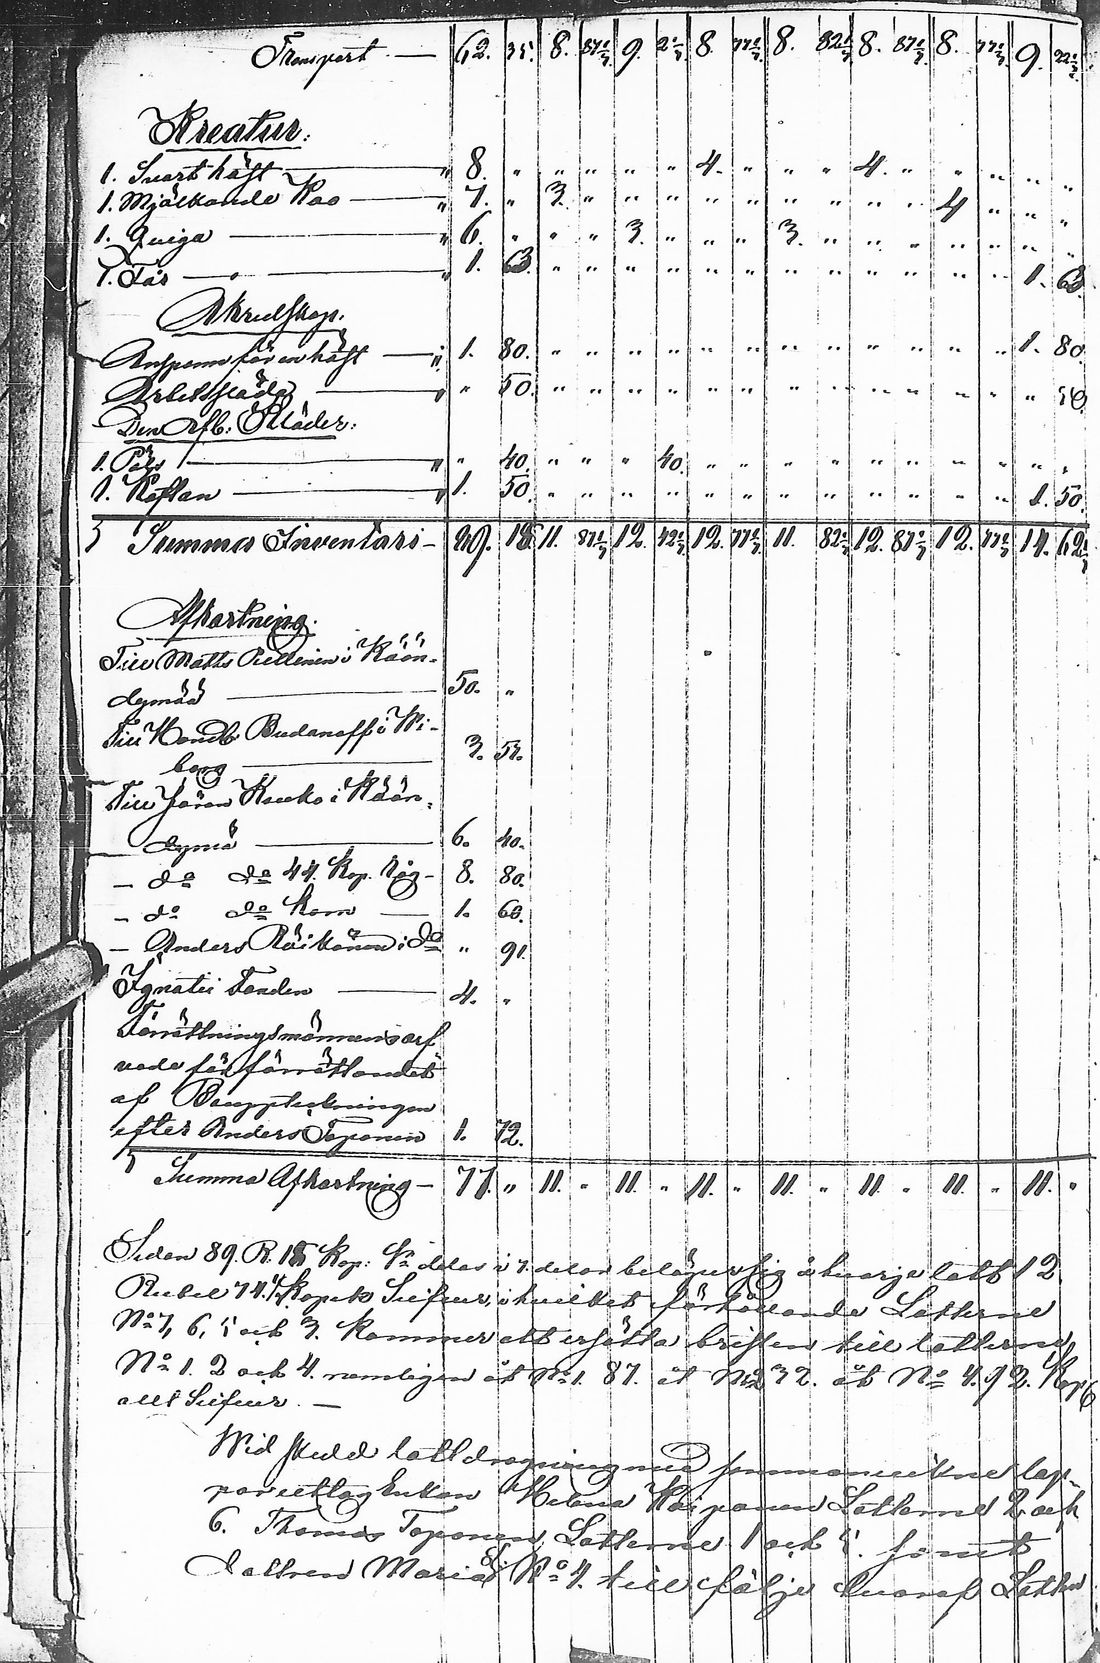 Transport — 62. 35. 8. 87 2/7 9. 2 2/7 8. 77 2/7 8. 82 2/7 8. 87 2/7 8. 77 2/7 9. 22 2/7
Kreatur:
1. Svart häst — " 8. " " " " " 4. " " " 4. " " " " "
1. Mjölkande Koo — " 7. " 3. " " " " " " " " " 4 " " "
1. Quiga — " 6. " " " 3. " " " 3. " " " " " " "
1. Får — " 1. 63. " " " " " " " " " " " " 1. 63.
Åkredskap.
Anspann för en häst — " 1. 80. " " " " " " " " " " " " 1. 80.
Arbetssläda — " " 50. " " " " " " " " " " " " " 50.
Den Afl: Kläder:
1. Päls — " " 40. " " " 40. " " " " " " " " " "
1. Kaftan — " 1. 50. " " " " " " " " " " " " 1. 50.
Summa Inventari — 89. 18. 11. 87 2/7 12. 42 2/7 12. 77 2/7 11. 82 2/7 12. 87 2/7 12. 77 2/7 14. 62 2/7
Afkortning.
Till Matts Pellinen i Kään-
dymää — 50. "
Till Handl. Budanoff i Wi-
borg — 3. 57.
Till Jöran Kauko i Kään-
dymä — 6. 40.
— do do 44. Kop. Råg — 8. 80.
— do do Korn — 1. 60.
— Anders Räikönen i do " 91.
Ignatii Fonden — 4. "
Förrättningsmännens arf
vode för förrättandet
af Bouppteckningen
efter Anders Toponen 1. 72.
Summa Afkortning — 77. " 11. " 11. " 11. " 11. " 11. " 11. " 11. "
Sedan 89. R. 18 Kop: Sr delas i 7. delar belöper sig å hvarje lott 12
Rubel 74 Kopek Silfver, i hvilket förhållande Lotterne
No 7, 6, 5 och 3. kommer att ersätta bristen till lotterne
No 1. 2 och 4. nemligen åt No 1. 87. åt No 2 32. åt No 4. 92. Kop
allt Silfver. —
Wid skedd lottdragning med
Enkan Helena Lotterne 2 och
6. Thomas Toponen Lotterne 1 och 5. samt
Dottren Maria No 4. till följe hvaraf Lotten